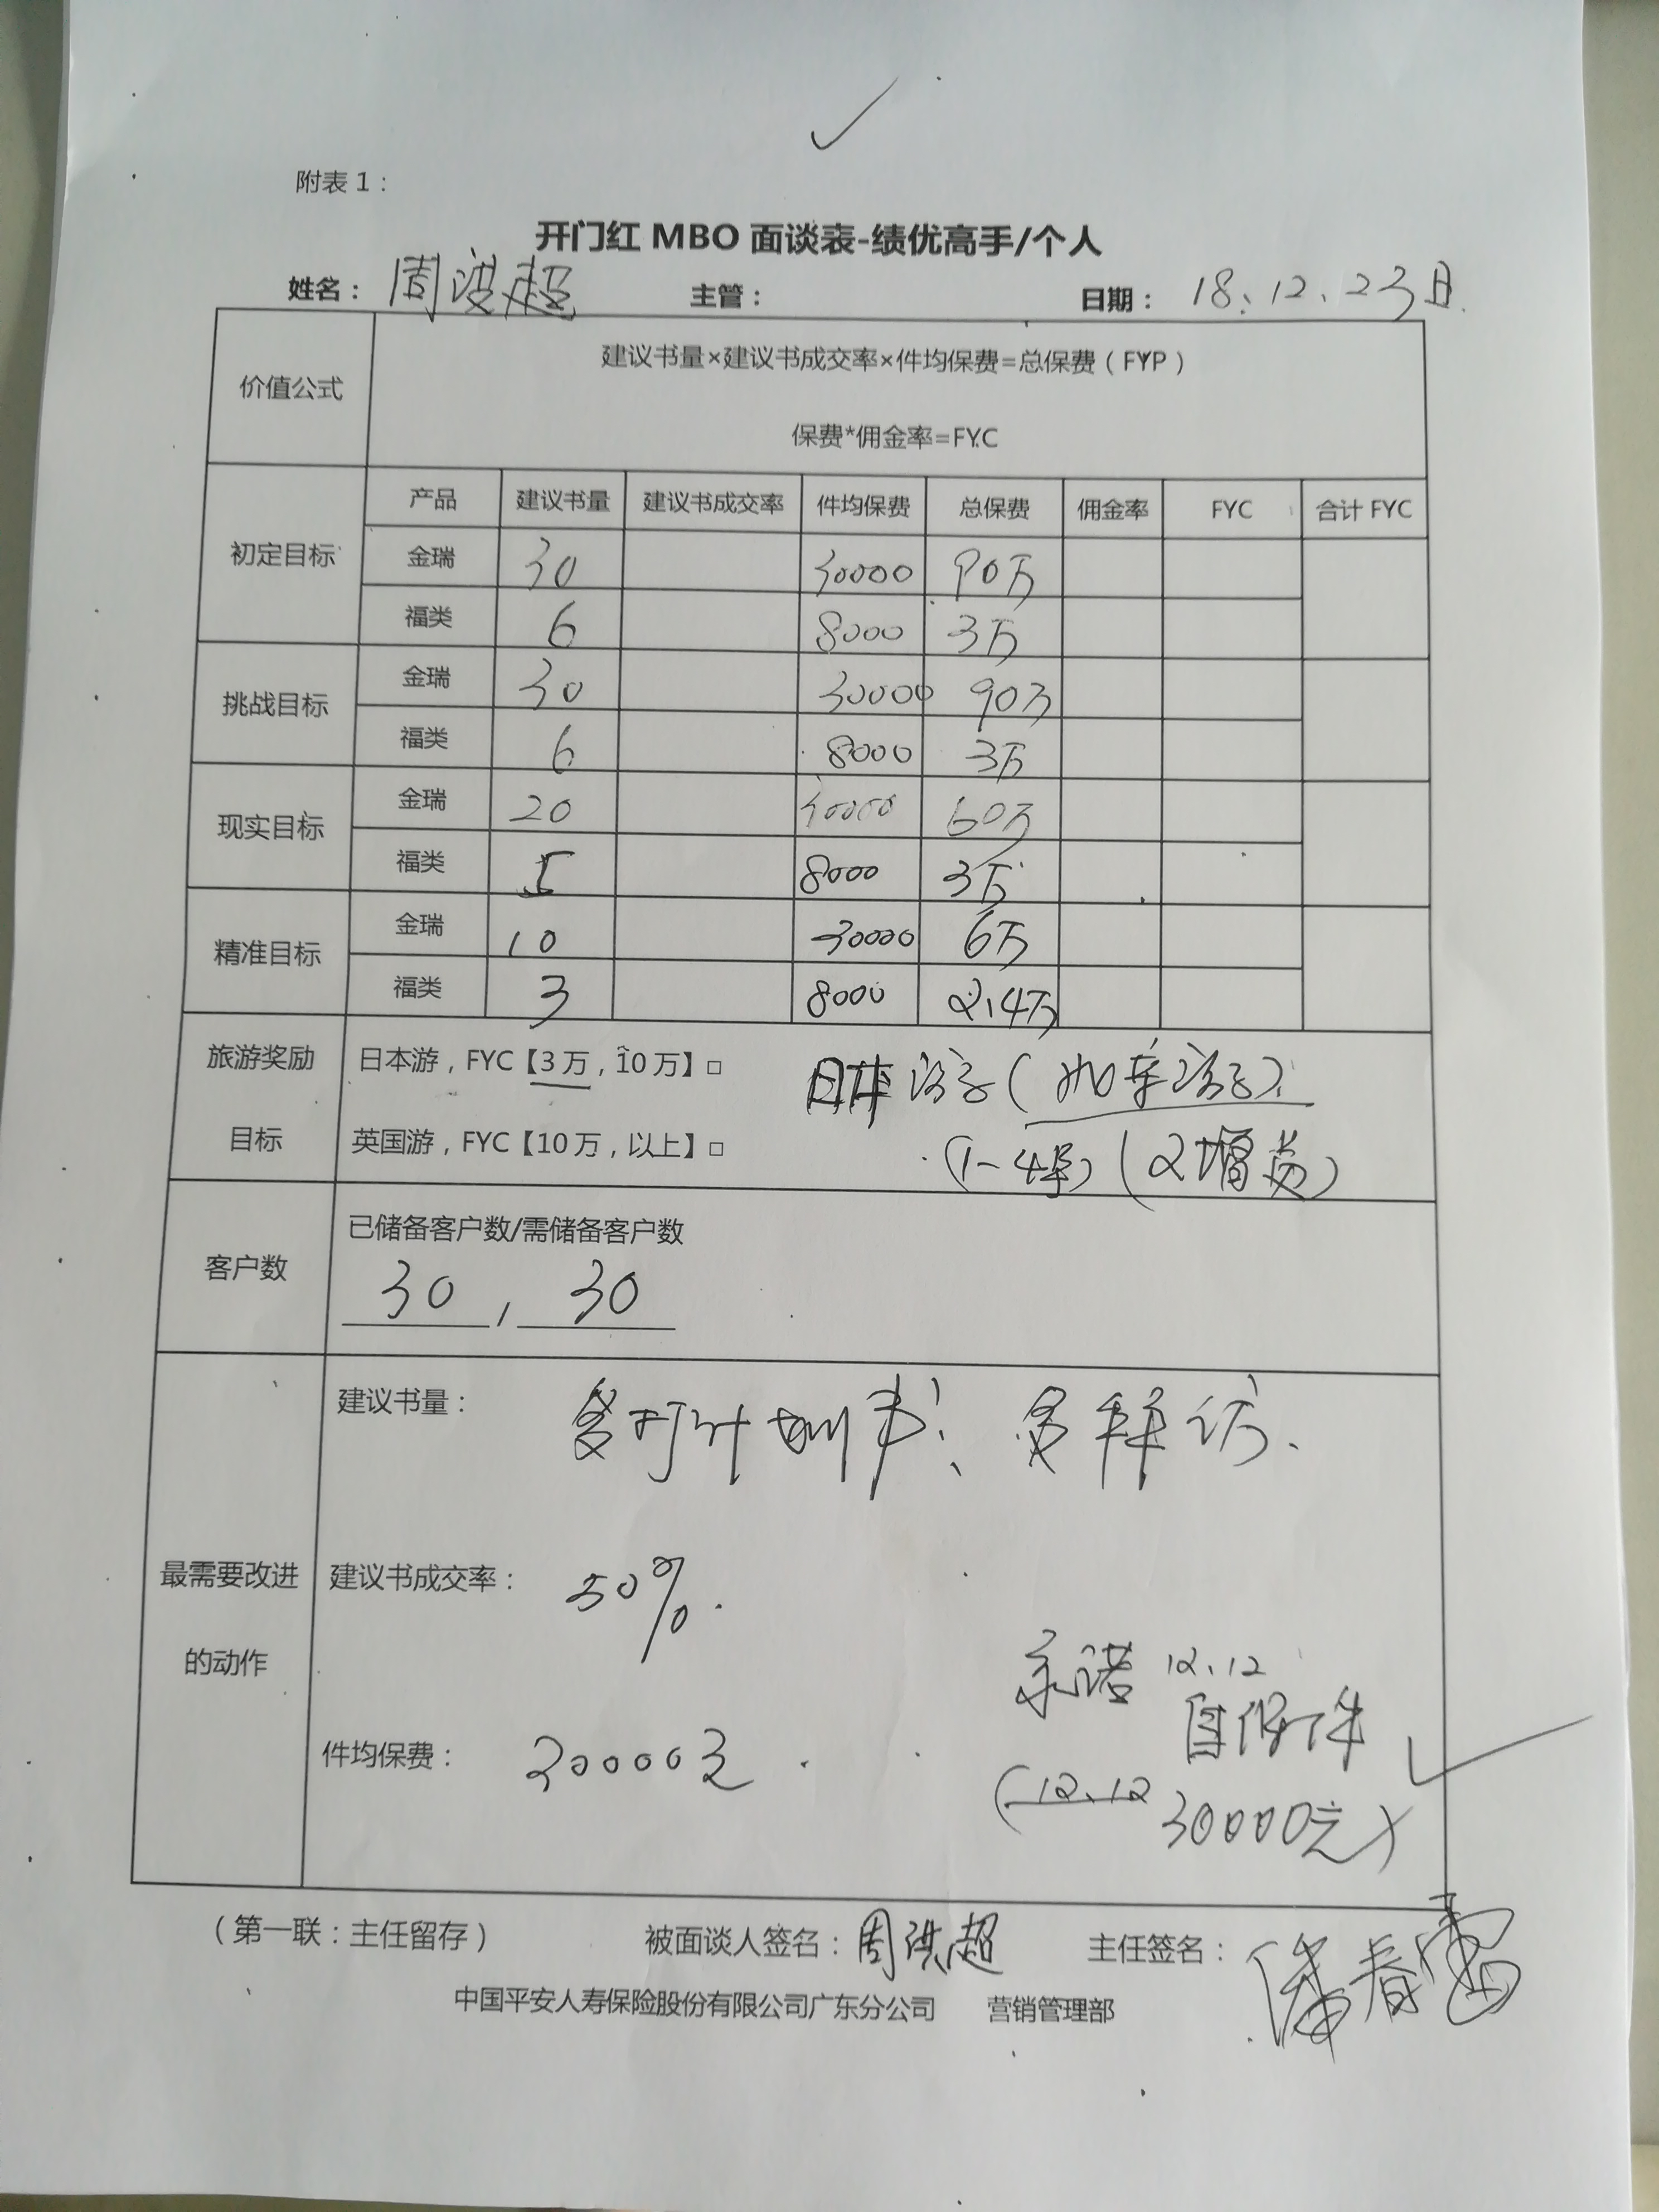 附表1：
开门红 MBO 面谈表-绩优高手/个人
姓名： 周洪超 主管： 日期： 18、12、23日
价值公式 建议书量×建议书成交率×件均保费=总保费（FYP）
保费*佣金率=FYC
产品 建议书量 建议书成交率 件均保费 总保费 佣金率 FYC 合计 FYC
初定目标 金瑞 30 30000 90万
福类 6 8000 3万
挑战目标 金瑞 30 30000 90万
福类 6 8000 3万
现实目标 金瑞 20 30000 60万
福类 5 8000 3万
精准目标 金瑞 10 30000 6万
福类 3 8000 2.4万
旅游奖励 日本游，FYC【3万，10万】□ 日本游
目标 英国游，FYC【10万，以上】□ (1-4月) (2增员)
已储备客户数/需储备客户数
客户数
30 , 30
建议书量： 多打计划书、多拜访、
最需要改进 建议书成交率： 50%.
的动作 承诺 12、12
自保件
件均保费： 30000元.
(12、12 30000元)
（第一联：主任留存） 被面谈人签名：周洪超 主任签名： 潘春雷
中国平安人寿保险股份有限公司广东分公司 营销管理部